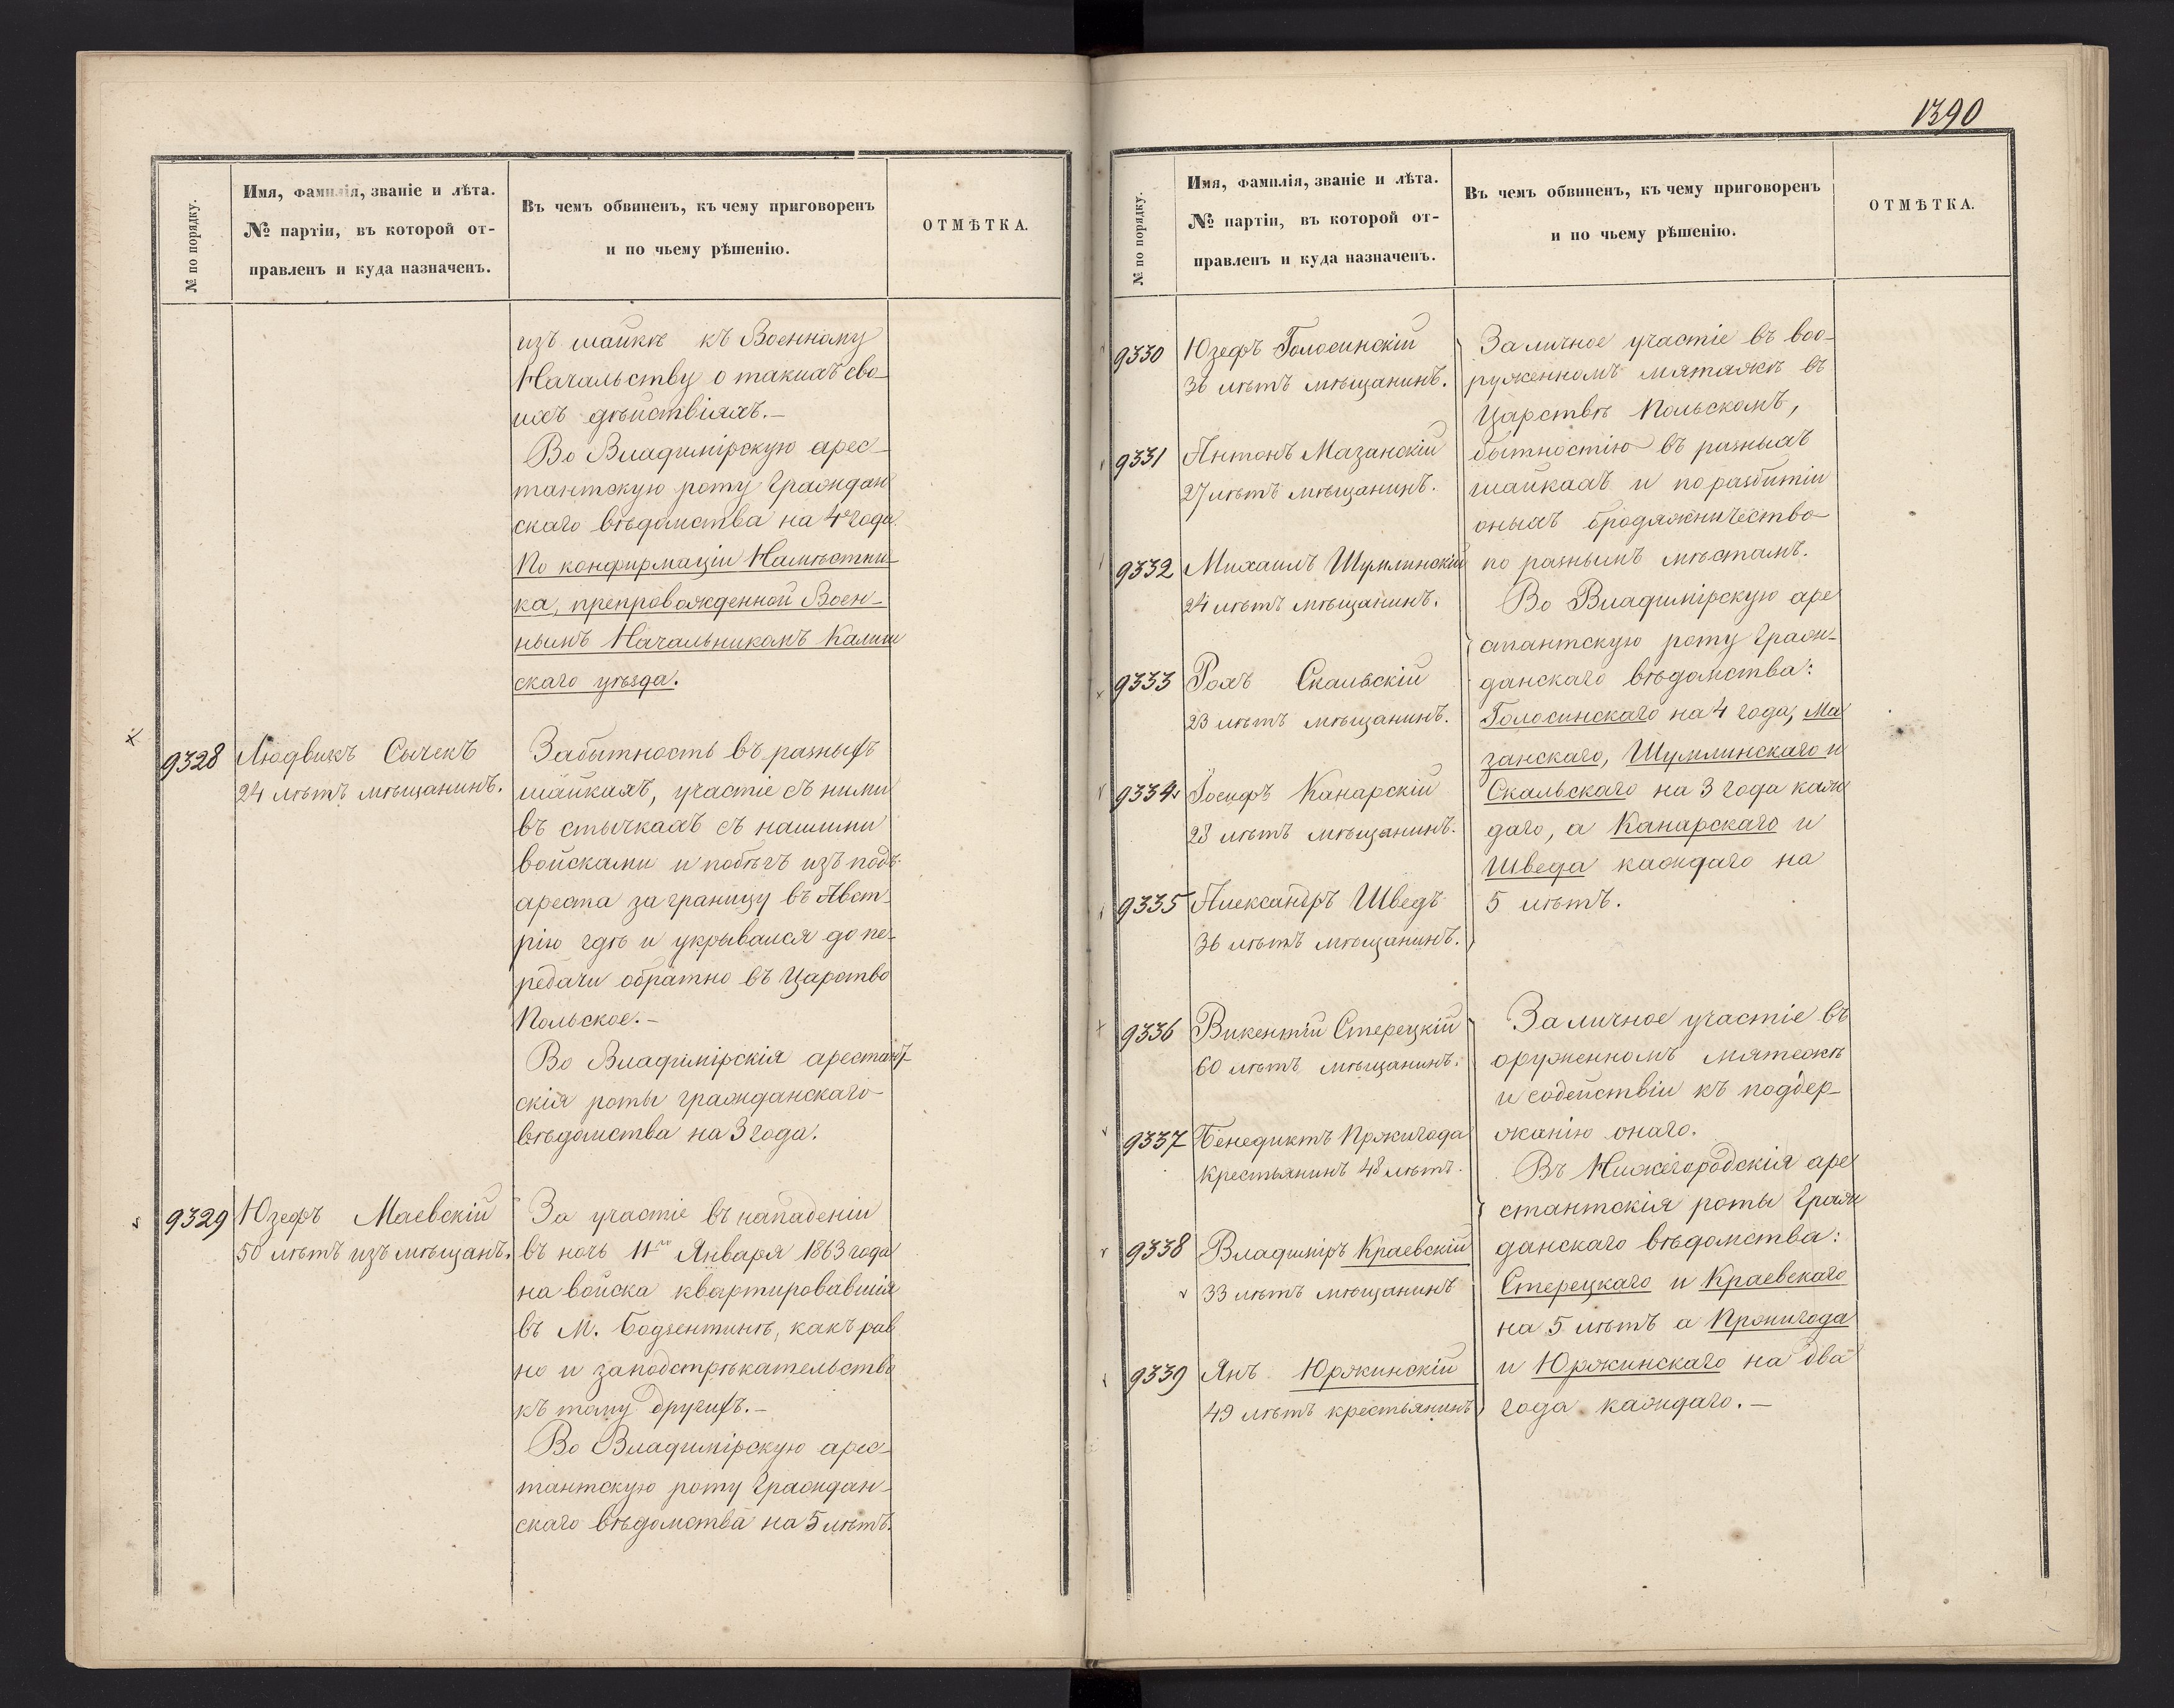 № по порядку.
Имя, фамилія, званіе и лѣта.
№ партіи, въ которой от-
правленъ и куда назначенъ.
Въ чемъ обвиненъ, къ чему приговоренъ
и по чьему рѣшенію.
ОТМѢТКА.
изъ шайки къ Военному
Начальству о такихъ сво-
ихъ дѣйствіяхъ.-
Во Владимірскую арес-
тантскую роту граждан
скаго вѣдомства на 4 года
По конфирмаціи Намѣстни-
ка, препровожденной Воен-
нымъ Начальникомъ Калиш
скаго уѣзда.
9328 Людвикъ Сычекъ
24 лѣтъ мѣщанинъ.
За бытность въ разныхъ
шайкахъ, участіе съ ними
въ стычкахъ съ нашими
войсками и побѣгъ изъ подъ
ареста за границу въ Авст-
рію гдѣ и укрывался до пе-
редачи обратно въ Царство
Польское.-
Во Владимірскія арестант-
скія роты гражданскаго
вѣдомства на 3 года.
9329 Юзефъ Маевскій
50 лѣтъ изъ мѣщанъ.
За участіе въ нападеніи
въ ночь 11го Января 1863 года
на войска квартировавшія
въ М. Бодзентинѣ, какъ рав
но и за подстрѣкательство
къ тому другихъ.-
Во Владимірскую арес-
тантскую роту граждан-
скаго вѣдомства на 5 лѣтъ.
1390
№ по порядку.
Имя, фамилія, званіе и лѣта.
№ партіи, въ которой от-
правленъ и куда назначенъ.
Въ чемъ обвиненъ, къ чему приговоренъ
и по чьему рѣшенію.
ОТМѢТКА.
9330 Юзефъ Голосинскій
36 лѣтъ мѣщанинъ.
9331 Антонъ Мазанскій
27 лѣтъ мѣщанинъ.
9332 Михаилъ Шумлинскій
24 лѣтъ мѣщанинъ.
9333 Рохъ Скальскій
23 лѣтъ мѣщанинъ.
9334 Іосифъ Канарскій
28 лѣтъ мѣщанинъ.
9335 Александръ Шведъ
36 лѣтъ мѣщанинъ.
За личное участіе въ воо-
руженномъ мятяжѣ въ
Царствѣ Польскомъ,
бытностію въ разныхъ
шайкахъ и по разбитіи
оныхъ бродяжничество
по разнымъ мѣстамъ.
Во Владимірскую аре
стантскую роту граж-
данскаго вѣдомства:
Голосинскаго на 4 года, Ма
занскаго, Шумлинскаго и
Скальскаго на 3 года каж
даго, а Канарскаго и
Шведа каждаго на
5 лѣтъ.
9336 Викентій Стерецкій
60 лѣтъ мѣщанинъ.
9337 Бенедиктъ Пржигода
крестьянинъ 48 лѣтъ.
9338 Владиміръ Краевскій
33 лѣтъ мѣщанинъ
9339 Янъ Юржинскій
49 лѣтъ крестьянинъ
За личное участіе въ
оруженномъ мятежѣ
и содействіи къ поддер-
жанію онаго.
Въ Нижегородскія аре
стантскія роты граж
данскаго вѣдомства:
Стерецкаго и Краевскаго
на 5 лѣтъ а Пржигода
и Юржинскаго на два
года каждаго.-